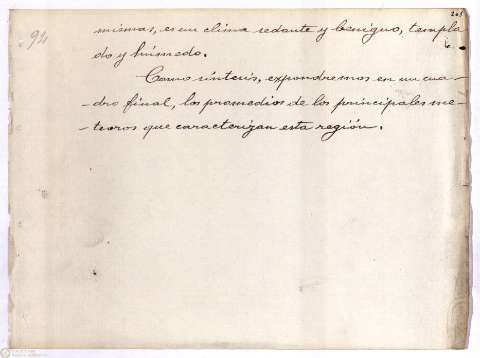 201
92
mismas, es un clima sedante y benigno, templa
do y húmedo.
Como síntesis, expondremos en un cua-
-dro final, los promedios de los principales me-
-teoros que caracterizan esta región.